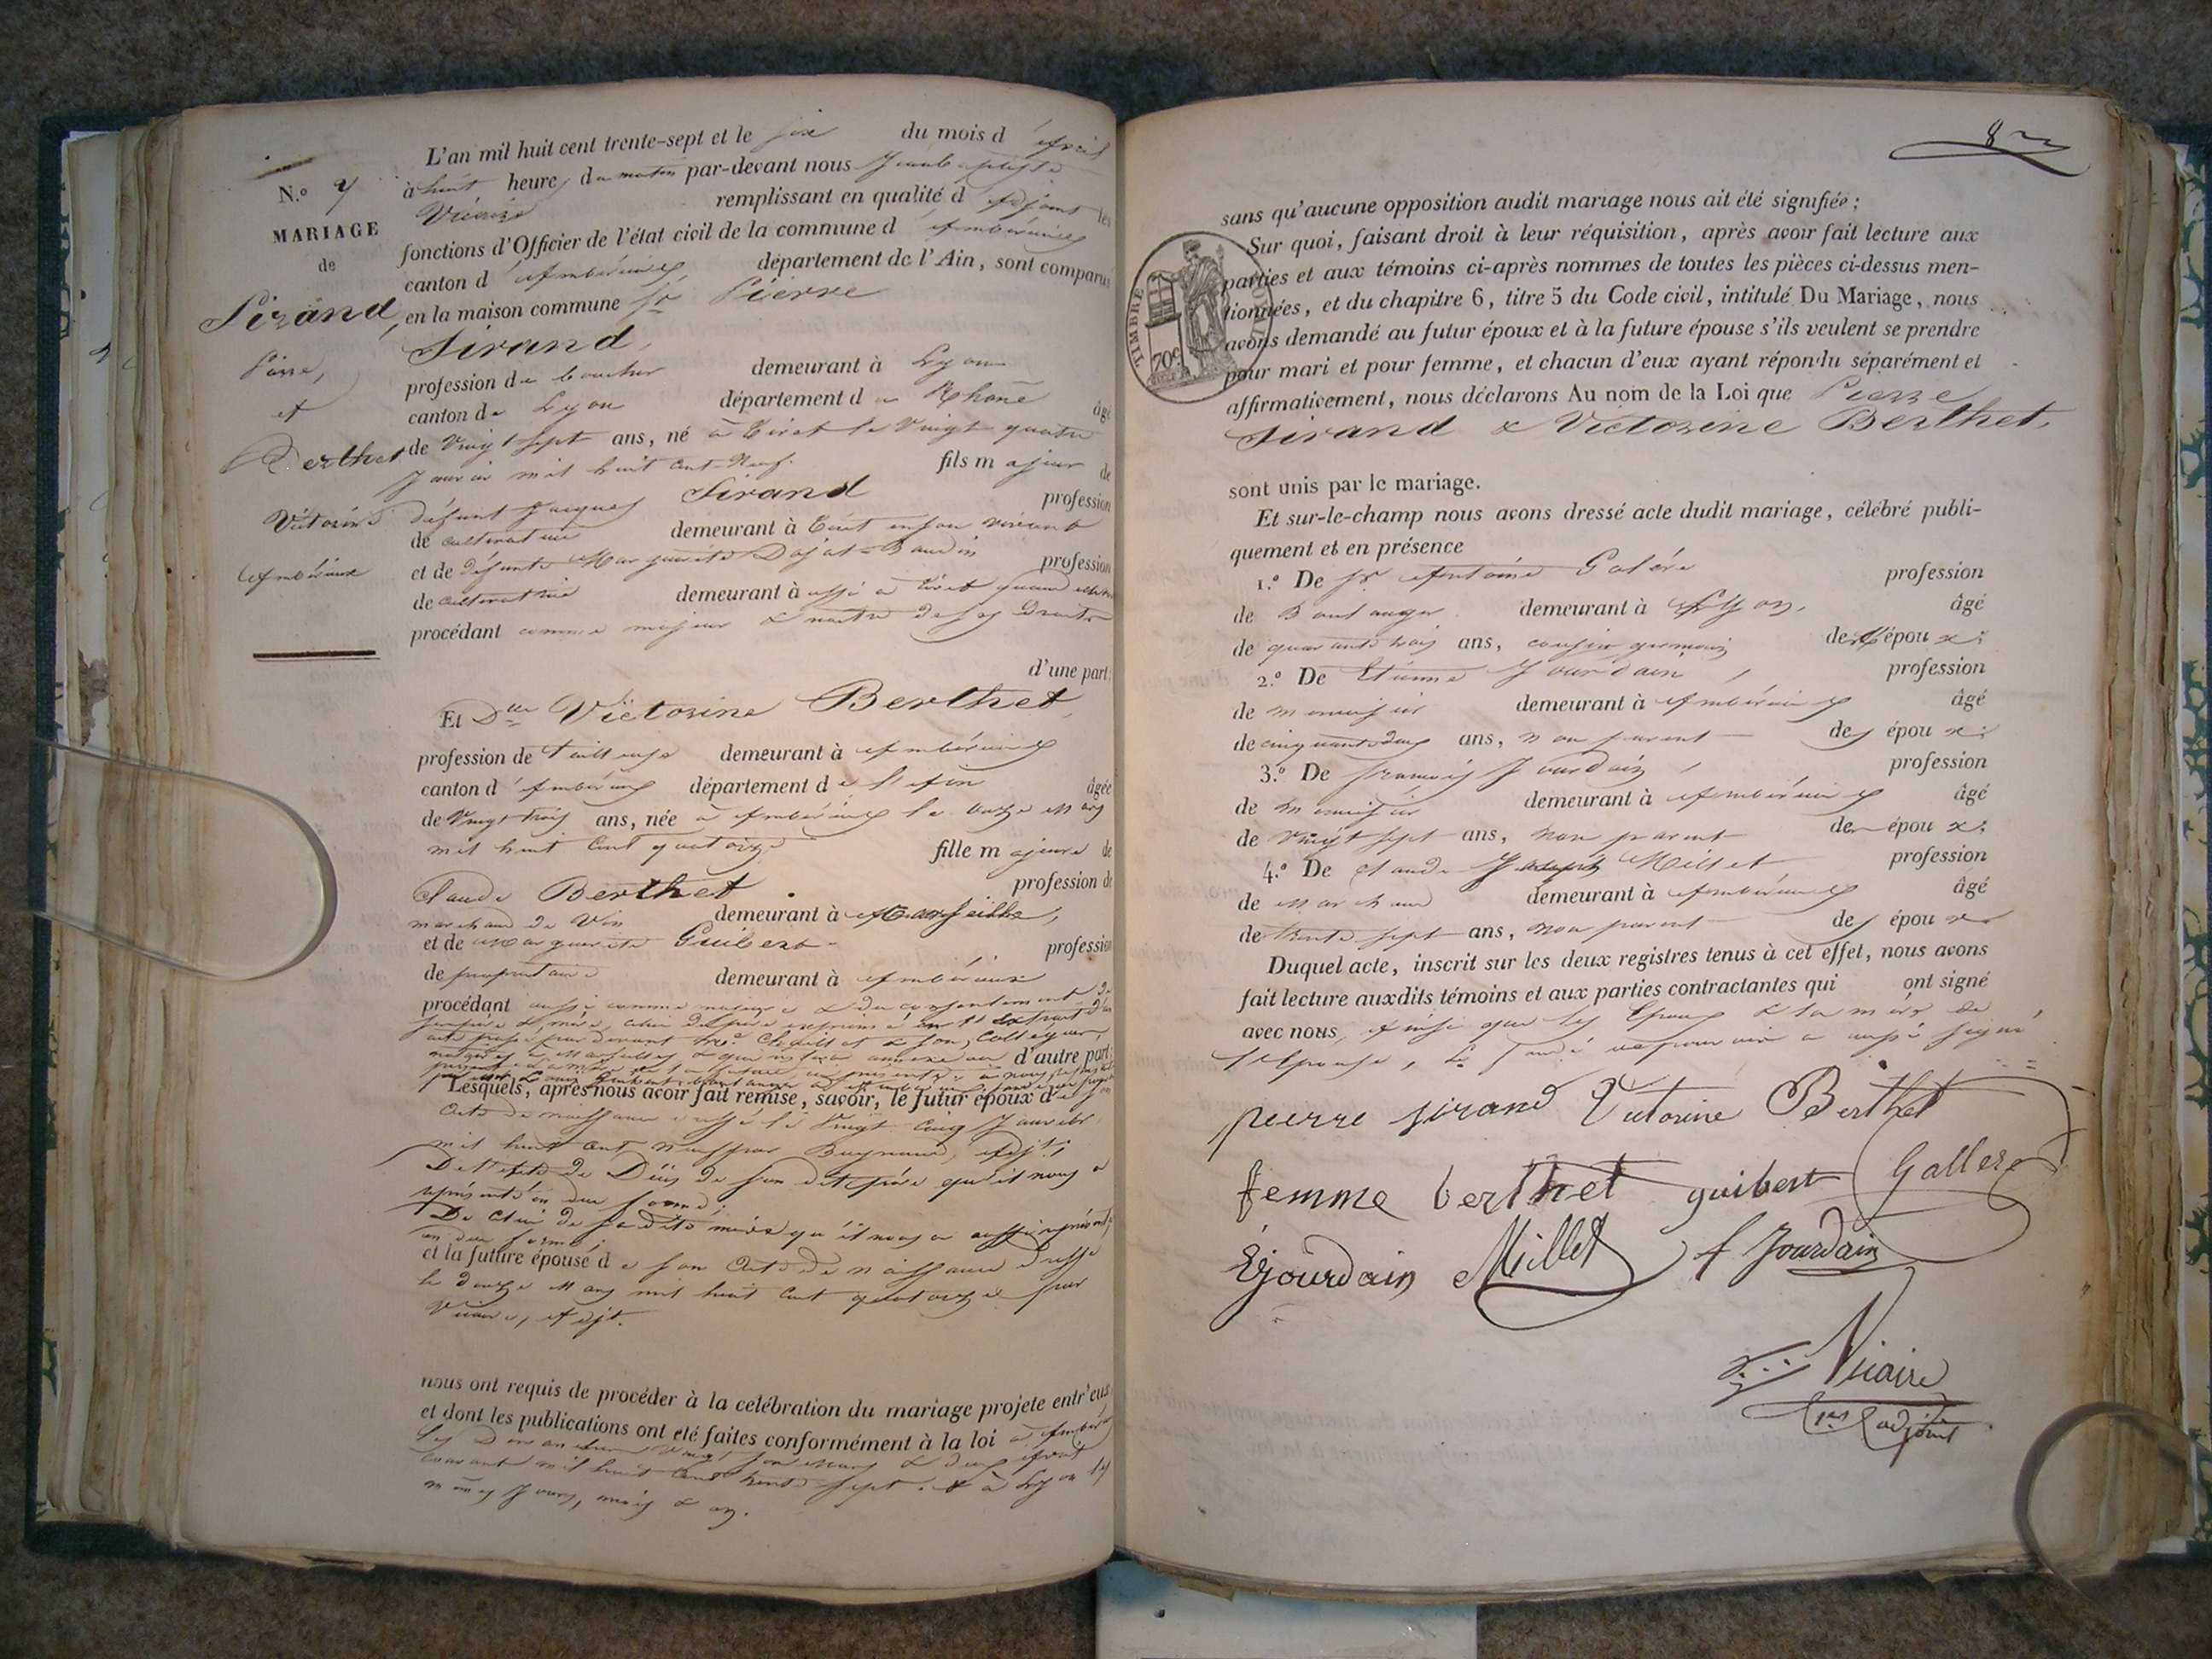 L'an mil huit cent trente-sept et le six du mois d'Avril
N.º 7
à huit heures du matin par-devant nous Jean baptiste
MARIAGE
Vicaire remplissant en qualité d'adjoint les
de
fonctions d'Officier de l'état civil de la commune d'Ambérieux
canton d'Ambérieux département de l'Ain, sont comparus
Sirand,
en la maison commune Sr Pierre
Sirand
Pierre,
profession de boucher demeurant à Lyon
et
canton de Lyon département du Rhône âgé
Berthet
de Vingt sept ans, né à Ciret le Vingt quatre
Janvier mil huit cent Neuf. fils majeur de
Victorine
défunt Jacques Sirand profession
de cultivateur demeurant à Ciret en son vivant
Ambérieux
et de défunte Marguerite profession
de cultivatrice demeurant à aussi à Ciret
procédant comme majeur & maitre de ses Droits
d'une part;
Et Dlle Victorine Berthet,
profession de Tailleuse demeurant à Ambérieux
canton d'Ambérieux département de l'Ain âgée
de Vingt trois ans, née à Ambérieux le onze Mars
mil huit Cent quatorze fille majeure de
Claude Berthet profession de
marchand de Vin demeurant à Marseille,
et de Marguerite Guibert profession
de propriétaire demeurant à Ambérieux
procédant aussi comme majeure & du consentement de
d'autre part;
Lesquels, après nous avoir fait remise, savoir, le futur époux de son
Acte de naissance dressé le Vingt Cinq Janvier
mil huit cent neuf par adjt;
De l'acte de Décès de son dit père qu'il nous a
représenté en due forme;
De Celui de sa dite mère qu'il nous a aussi représenté
en due forme;
et la future épouse de son Acte de naissance dressé
le douze Mars mil huit Cent quatorze par
Vicaire, Adjt.
nous ont requis de procéder à la célébration du mariage projeté entr'eux
et dont les publications ont été faites conformément à la loi à Ambérieux
les Dimanches Vingt six Mars & deux Avril
courant mil huit Cent trente sept. & à Lyon les
mêmes Jours, mois & an.
8
sans qu'aucune opposition audit mariage nous ait été signifiée;
Sur quoi, faisant droit à leur réquisition, après avoir fait lecture aux
parties et aux témoins ci-après nommés de toutes les pièces ci-dessus men-
tionnées, et du chapitre 6, titre 5 du Code civil, intitulé Du Mariage, nous
avons demandé au futur époux et à la future épouse s'ils veulent se prendre
pour mari et pour femme, et chacun d'eux ayant répondu séparément et
affirmativement, nous déclarons Au nom de la Loi que Pierre
TIMBRE ROYAL
70c
Sirand & Victorine Berthet,
sont unis par le mariage.
Et sur-le-champ nous avons dressé acte dudit mariage, célébré publi-
quement et en présence
1.º De Sr Antoine Galére profession
de Boulanger demeurant à Lyon, âgé
de quarante trois ans, cousin germain de l'époux;
2.º De Etienne Jourdain, profession
de menuisier demeurant à Ambérieux âgé
de cinquante deux ans, non parent des époux;
3.º De françois Jourdain, profession
de menuisier demeurant à Ambérieux âgé
de vingt sept ans, non parent des époux;
4.º De Claude Joseph Millet profession
de Marchand demeurant à Ambérieux âgé
de trente sept ans, non parent des époux
Duquel acte, inscrit sur les deux registres tenus à cet effet, nous avons
fait lecture auxdits témoins et aux parties contractantes qui ont signé
avec nous, Ainsi que les Epoux & la mère de
l'Epouse, a aussi signé
pierre sirand Victorine Berthet
femme berthet guibert Gallere
E jourdain Millet f Jourdain
Vicaire
1er adjoint